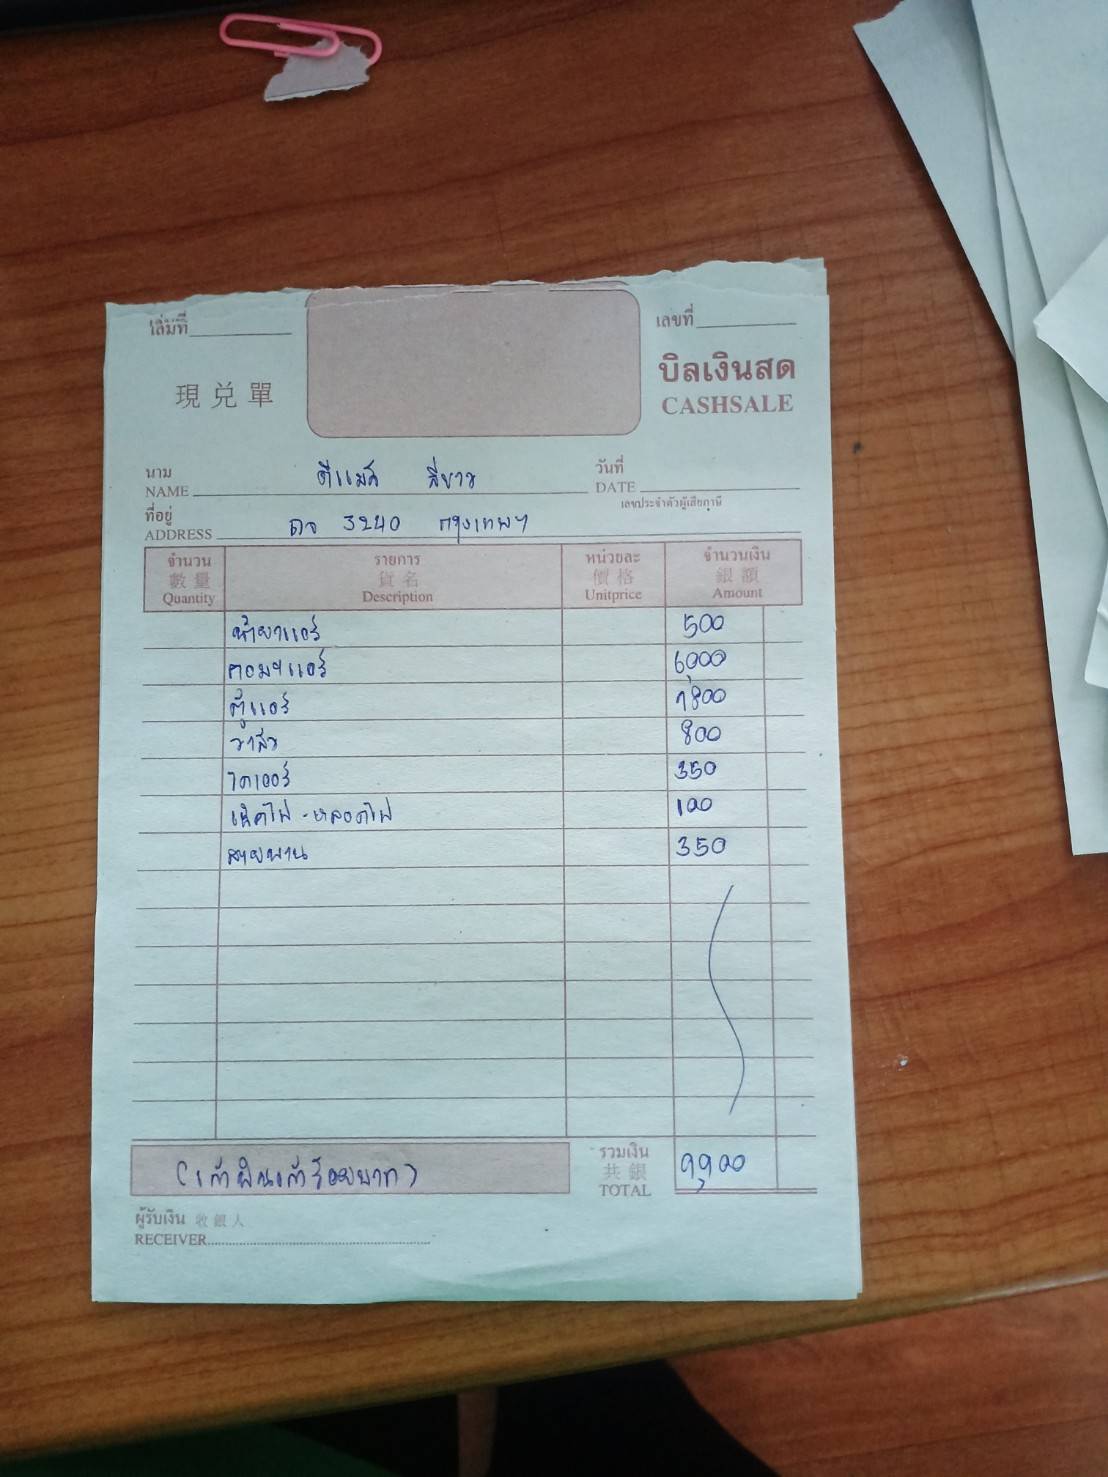 เล่มที่
เลขที่
現兌單
บิลเงินสด
CASHSALE
นาม
NAME ดีแมค สีขาว
วันที่
DATE
เลขประจำตัวผู้เสียภาษี
ที่อยู่
ADDRESS ฒจ 3240 กรุงเทพฯ
จำนวน รายการ หน่วยละ จำนวนเงิน
數量 貨名 價格 銀額
Quantity Description Unitprice Amount
น้ำยาแอร์ 500
คอมฯแอร์ 6,000
ตู้แอร์ 1800
วาล์ว 800
ไดเออร์ 350
เช็คไฟ - หลอดไฟ 100
สายพาน 350
(เก้าพันเก้าร้อยบาท)
รวมเงิน
共銀
TOTAL 9,900
ผู้รับเงิน 收銀人
RECEIVER